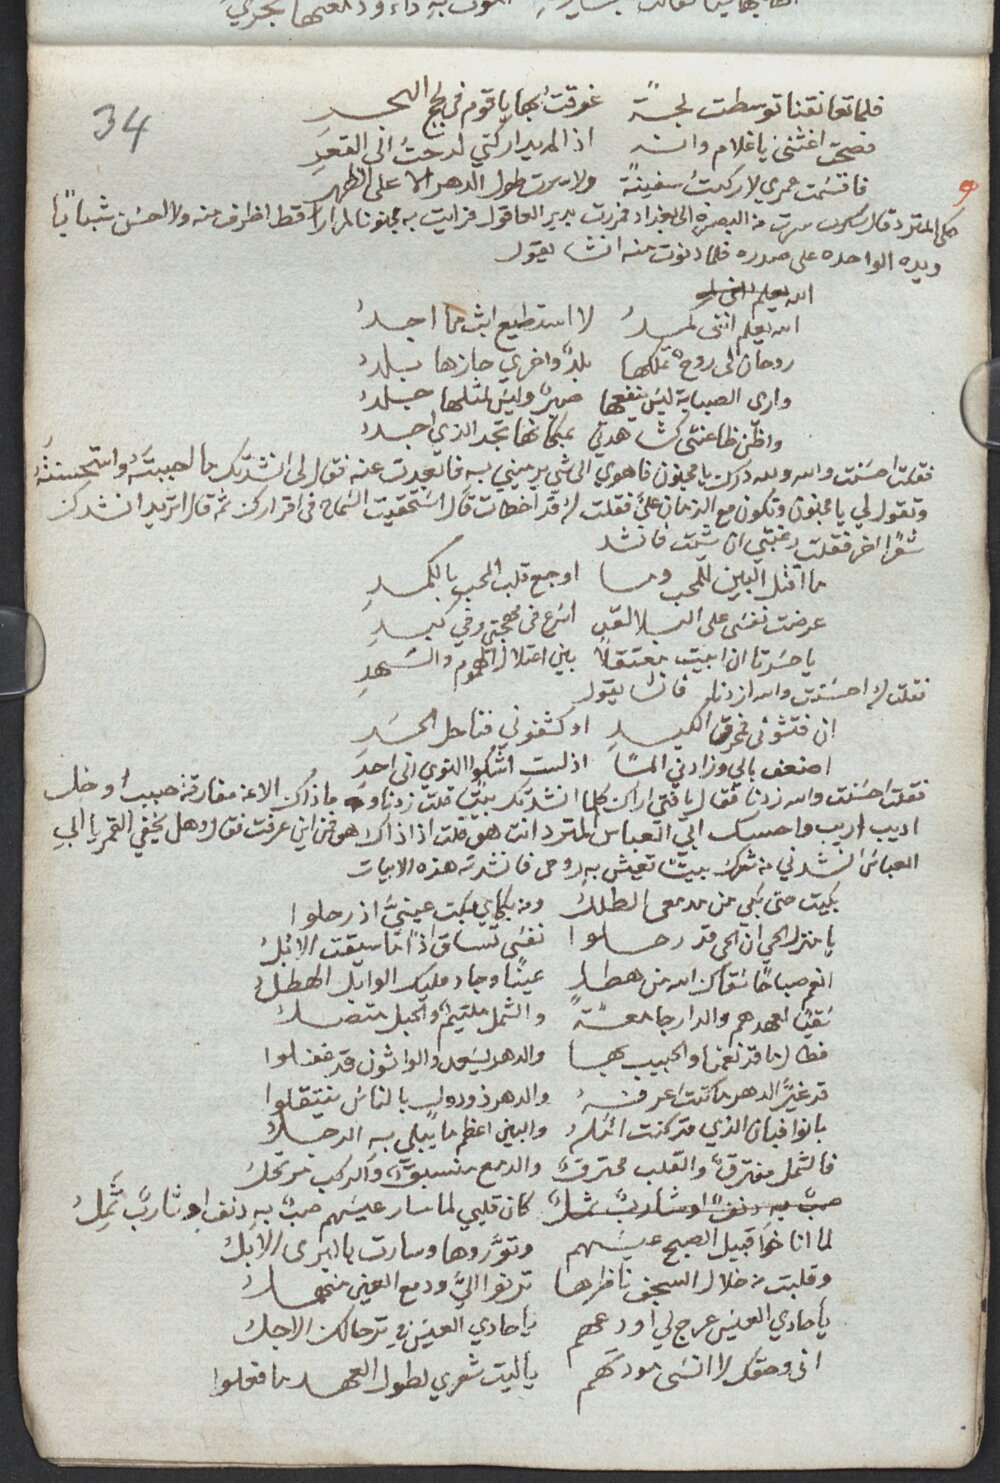 34
فلما تعانقنا توسطت لجةً غرقتُ بها يا قوم في لج البحر
فصحت اغثني يا غلام وانه اذا لم يداركني لدحتُ الى القعرِ
فاقسَمت عمري لا ركبتُ سفينةً ولا سرت طول الدهر الا على الظهر
حكى المبرد قال سرت من البصرة الى بغداد فمررت بدير العاقول فرايت به مجنونا لم ار قط اظرف منه ولا احسن شبابًا
ويده الواحده على صدره فلما دنوت منه انشا يقول
الله يعلم
الله يعلم انني كمدُ لا استطيع ابث ما اجدُ
روحان لي روحٌ تملكها بلدٌ واخرى حازها بلدُ
وارى الصبابة ليس ينفعها صبرٌ وليس لمثلها جلدُ
واظن ظاعنتي كشاهدتي بمكانها تجد الذي اجدُ
فقلت احسنت والله ولله درك يا مجنون فاهوى الى شي يرميني به فابعدت عنه فقال لي انشدتك ما احببتَهُ واستحسنتهُ
وتقول لي يا مجنون وتكون مع الزمان عليَّ فقلت له قد اخطات قال استحقيت السماح في اقرارك ثم قال اتريد انشدك
شعرًا اخر فقلت رغبتي ان شئت فانشد
ما اقتل البين للمحب وما اوجع قلب المحب بالكمدِ
عرضت نفسي على البلا لقد اسرع في مهجتي وفي كبدِ
يا حسرتا ان ابيت معتقلًا بين اعتلال الهموم والسهدِ
فقلت له احسنت والله زدنا فانشا يقول
ان فتشوني فمحرق الكبدِ او كشفوني فناحل الجسَدِ
اضعف بالي وزادني المًا اذ لست اشكوا النوى الى احدِ
فقلت احسنت والله زدنا فقال يا فتى اراك كلما انشدتك بيتًا قلت زدنا وما ذاك الا عن مفارقة حبيب او خل
اديب اريب واحسبك ابي العباس المبرد انت هو قلت اذا ذاك هو فمن اين عرفت فقال وهل يخفي القمر يا ابي
العباس انشدني من شعرك بيتًا تعيش به روحي فانشدته هذه الابيات
بكيت حتى بكى من مدمعي الطللُ ومن بكاي بكت عينيَّ اذ رحلوا
يا منزل الحي ان الحي قد رحلوا نفسي تساق اذا ما سيقت الابلُ
انعم صباحًا سقاك الله من هطلٍ غيثًا وجاد عليك الوابل الهطلُ
سَقيًا لعهدهم والدار جامعةً والشمل ملتيمٌ والحبل متصلُ
فطالما قد نعمنا والحبيب بها والدهر يسعد والواشون قد غفلوا
قد غيَّر الدهر ما كنت اعرفهُ والدهر ذو دولٍ بالناس ينتقلوا
بانوا فبان الذي قد كنت املهُ والبين اعظم ما يبلى به الرجلُ
فالشمل مفترقٌ والقلب محترقٌ والدمع منسبقٌ والركب مرتحلُ
صبٌ به دنفٌ او شاربٌ ثملُ كان قلبي لما سار عيسهم صبٌ به دنف او شاربٌ ثَمِلُ
لما اناخوا قبيل الصبح عيسهم وثوَّروها وسارت بالهوى الابلُ
وقلبت من خلال السجف ناظرها ترنوا اليَّ ودمع العين منهملُ
يا حادي العيس عرج لي اودعهم يا حادي العيس في ترحالك الاجلُ
اني وحقك لا انسى مودتهم يا ليت شعري لطول العهد ما فعلوا